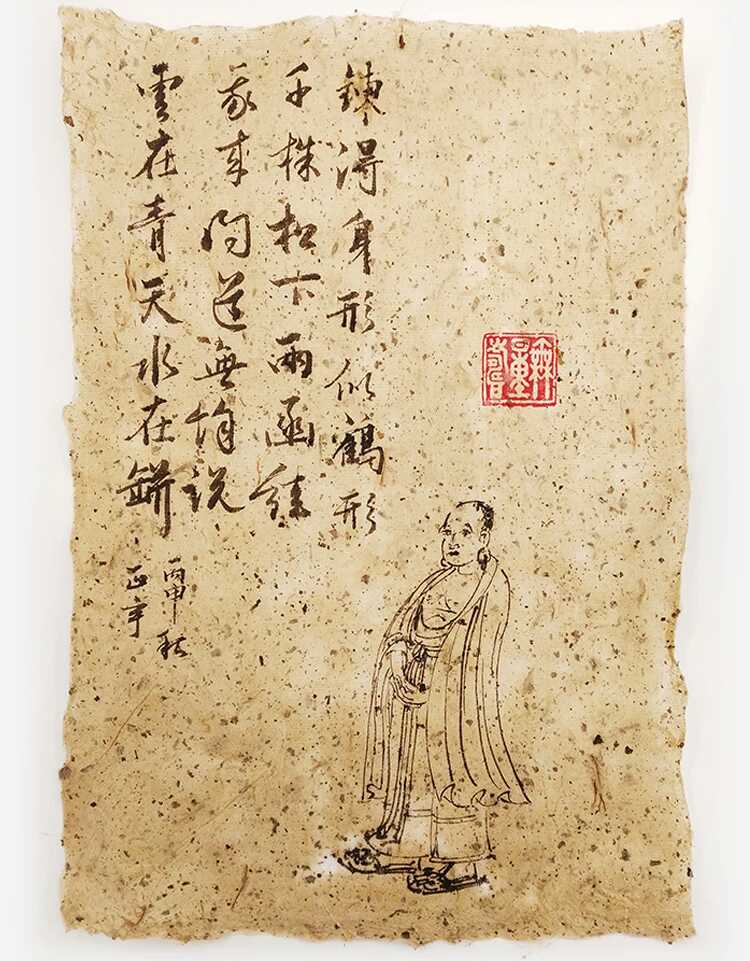 鍊得身形似鶴形
千株松下兩函經
我來問道無餘說
雲在青天水在缾
丙申秋
正
無量壽